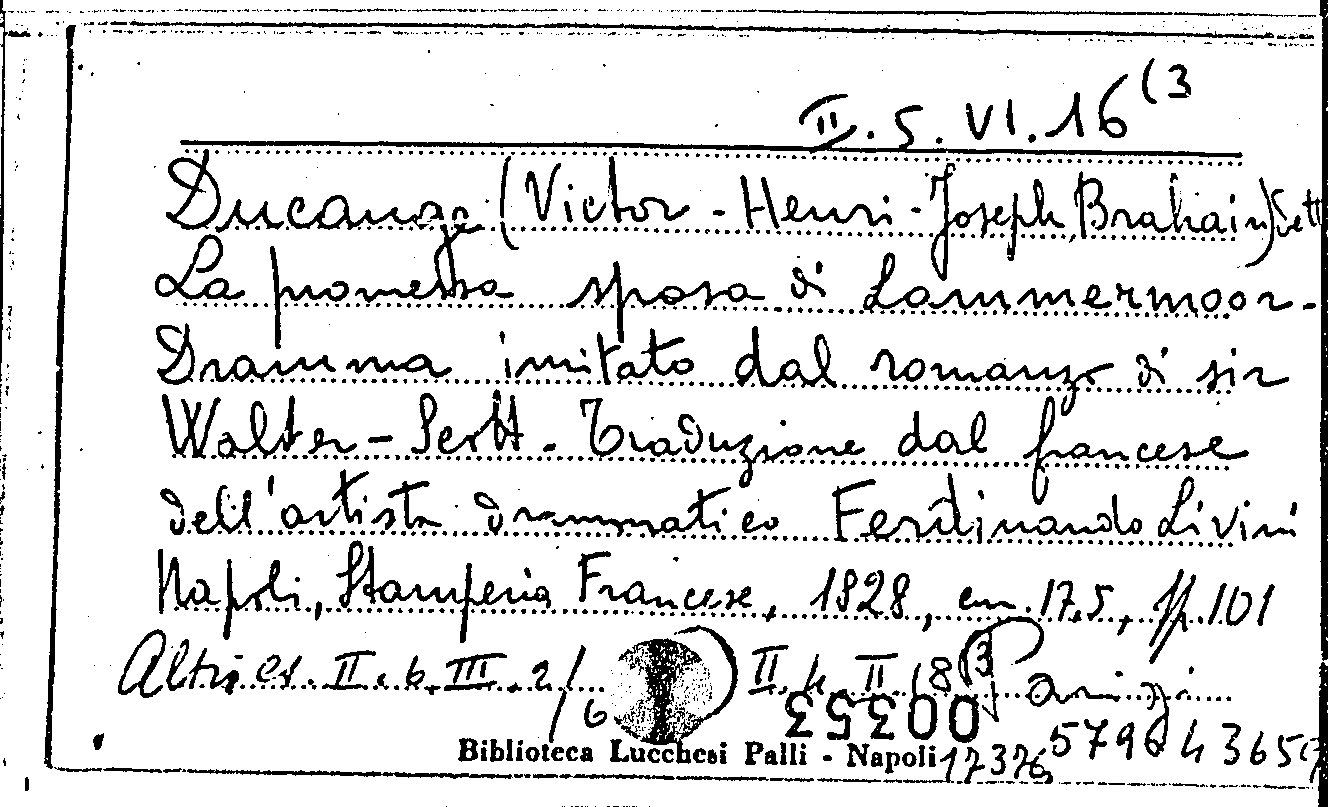 II. 5. VI. 16 (3
Ducange (Victor - Henri - Joseph Brahain)
La promessa sposa di Lammermoor -
Dramma imitato dal romanzo di sir
Walter - Scott - Traduzione dal francese
dell'artista drammatico Ferdinando Livini
Napoli, Stamperia Francese, 1828, cm. 17.5, pp. 101
Altri es. II. 6. III. 2/6 II. 4. II. 18 (3
00353
Biblioteca Lucchesi Palli - Napoli 17376